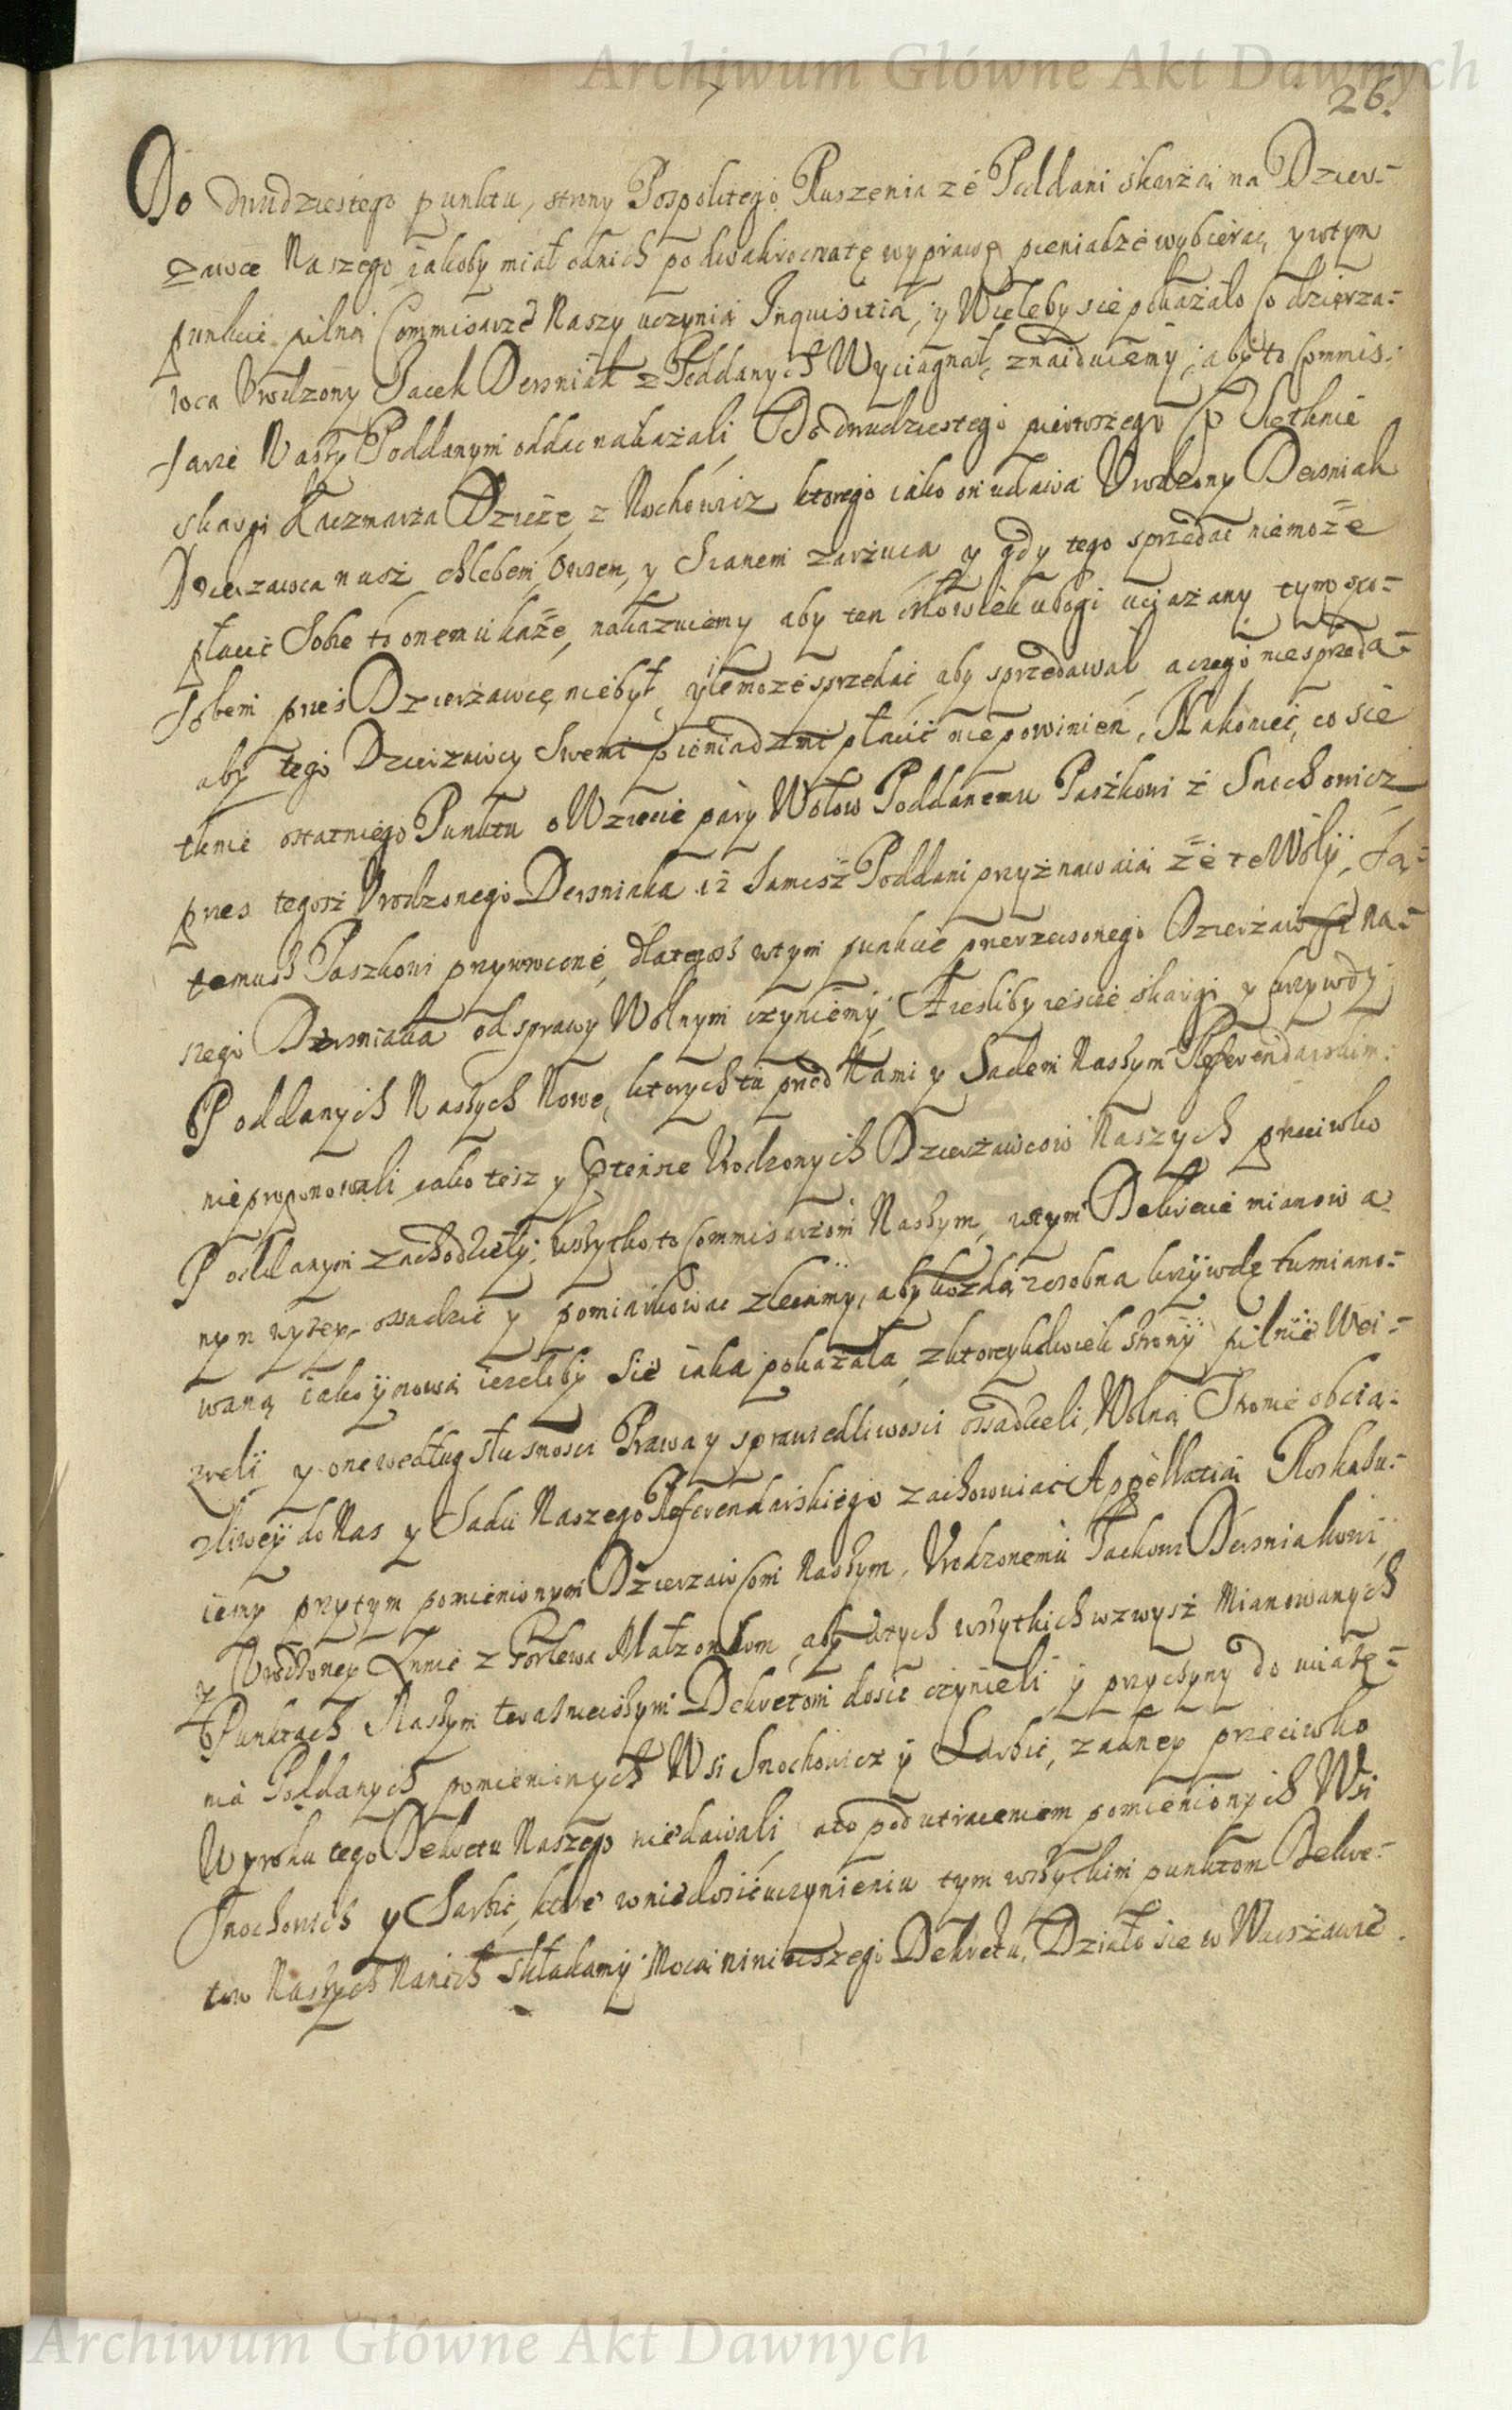 Archiwum Główne Akt Dawnych
26.
Do dwudziestego punktu, strony Pospolitego Ruszenia zé Poddani skarżą na Dzier=
zawcé Naszego iakoby miał odnich po dwakroć natę wyprawę pieniadzé wybierać, y wtym
punkcie pilną Commisarzé Naszy uczynią Inquisitią, y Wieleby sie pokazało co dzierza=
woca Urodzony Jacek Dersniak z Poddanych Wyciągnał, znaiduiemy, aby to Commis=
sarze Naszy Poddanym oddać nakazali, Do dwudziestego pierwszego
skargi Kaczmarza z Nochowicz ktorego iako on udawa Urodzony Dersniak
Dzierzawca nasz chlebem, Owsem, y Sianem zarzuca y gdy tego sprzedać niemoże
płacić Sobie to onemu każe, nakazuiemy aby ten człowiek ubogi uciążany tym spo=
sobem przes Dzierżawcę niebył, ylemoże sprzedać aby sprzedawał, aczego niesprzeda=
aby tego Dzierżawcy Swemi pieniadzmi płacić niepowinien, Nakoniec, co sie
tknie ostatniego Punktu o Wziecie pary Wołow Poddanemu Paszkowi z Snochowicz
przes tegosz Urodzonego Dersniaka iż Samisz Poddani przyznawaią że te Woły, Ta=
temusz Paszkowi przywrocone, dlategosz wtym punkcie przerzeczonego Dzierżaw Na=
szego Dersniaka od sprawy Wolnym czyniemy, A iesliby iescze skargi y krzywdy
Poddanych Naszych Nowe, ktorych tu przed Nami y Sadem Naszym Referendarskim
nieproponowali iako tesz y Urodzonych Dzierzawcow Naszych przeciwko
Poddanym zachodziełÿ, wszytko to Commisarzom Naszym, wtym Dekrecie mianowa
nym ossadzić y pomiarkować zlecamy, aby kożdą zosobna krzywdę tumiano=
waną iako y nową iezeliby Sie iaka pokazała, zktoreykolwiek Strony pilnie Wei=
zreli y one według słusznosci Prawa y sprawiedliwosci ossadzieli, Wolną Stronie obcią=
zliwey do Nas y Sadu Naszego Referendarskiego zachowuiąc Appellatią Roskazu=
iemy przytym pomienionym Dzierzawcom Naszym, Urodzonemu Jackowi Dersniakowi
y Urodzoney Annie z Małzonkom, aby wtych wszytkich wzwysz Mianowanych
Punktach Naszym terasnieiszym Dekretom dosic czynieli y przyczyny do uciaże=
nia Poddanych pomienionych Wsi Snochowicz y Sarbic, zadney przeciwko
Wyroku tego Dekretu Naszego niedawali, ato pod utraceniem pomienionych Wsi
Snochowicz y Sarbic, ktore wniedosicuczynieniu tym wszytkim punktom Dekre=
tow Naszych Nanich składamy Mocą niniejszego Dekretu, Działo sie w Warszawie.
Archiwum Główne Akt Dawnych